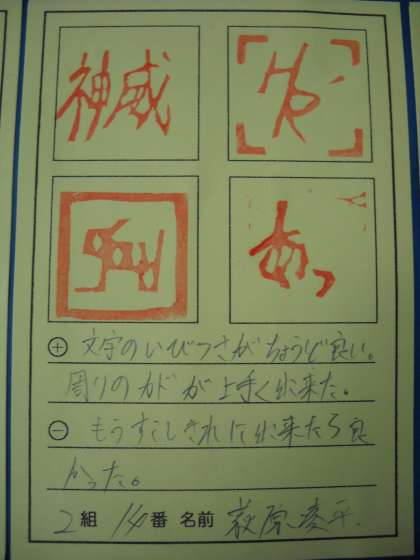 神威
あっ
⊕ 文字のいびつさがちょうど良い。
周りのカドが上手く出来た。
⊖ もうすこしきれいに出来たら良
かった。
2組 14番 名前 荻原凌平